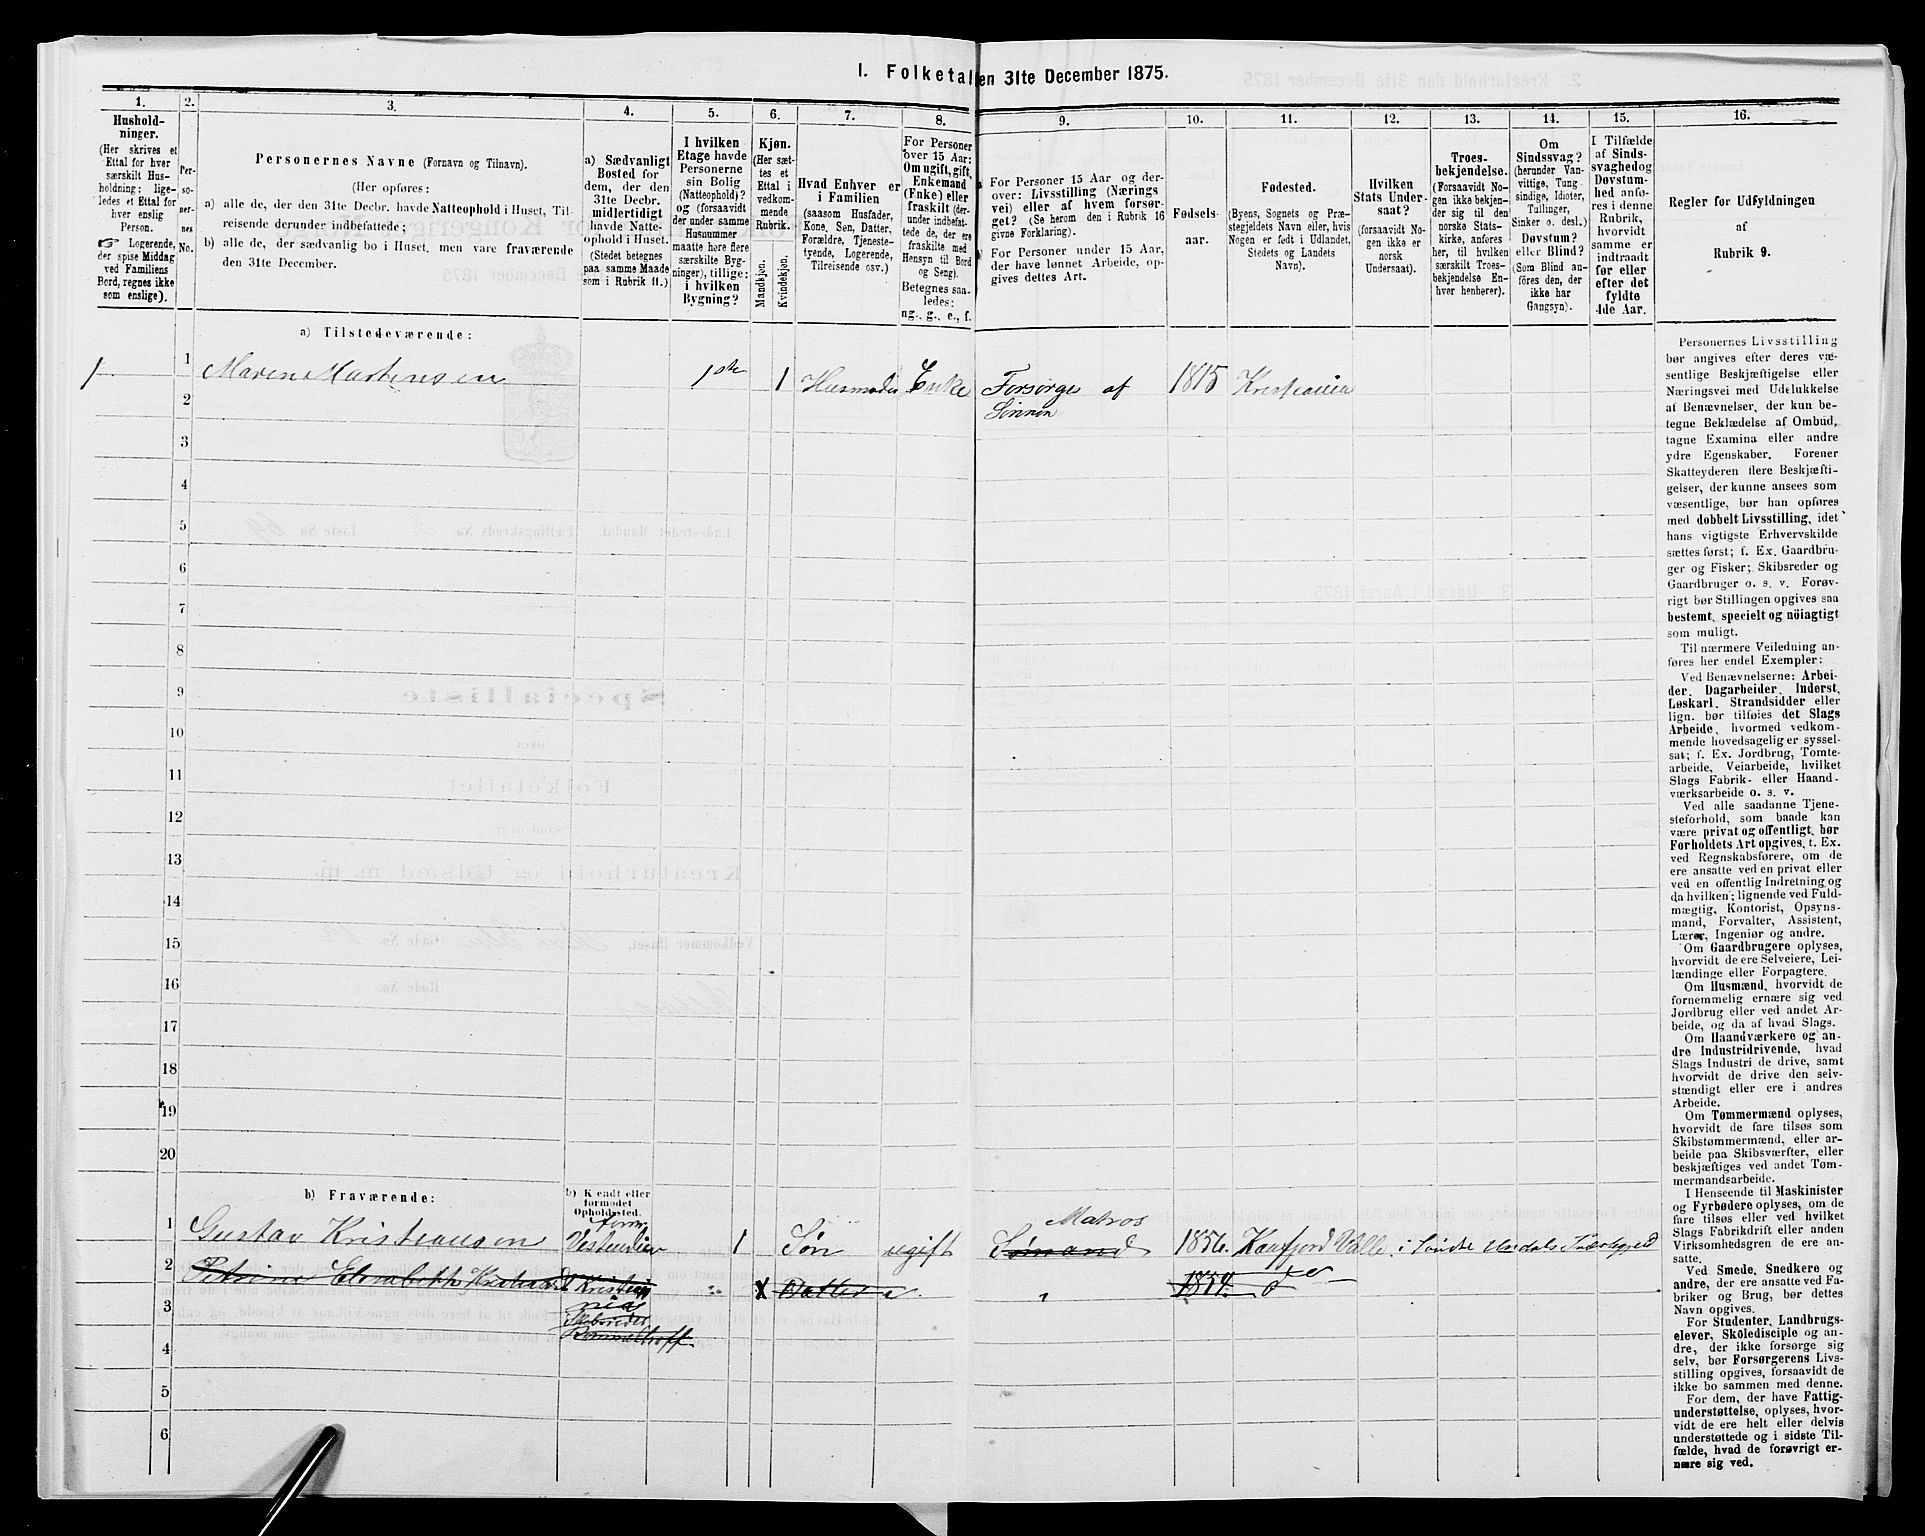 I. Folketal en 31te December 1875.
1. 2. 3. 4. 5. 6. 7. 8. 9. 10. 11. 12. 13. 14. 15. 16.
Hushold-
ninger.
(Her skrives et
Ettal for hver
særskilt Hus-
holdning; lige-
ledes et Ettal for
hver enslig
Person.
☞ Logerende,
der spise Middag
ved Familiens
Bord, regnes ikke
som enslige).
Per-
so-
ner-
nes
No.
Personernes Navne (Fornavn og Tilnavn).
(Her opføres:
a) alle de, der den 31te Decbr. havde Natteophold i Huset, Til-
reisende derunder indbefattede;
b) alle de, der sædvanlig bo i Huset, men vare fraværende
den 31te December.
a) Sædvanligt
Bosted for
dem, der den
31te Decbr.
midlertidigt
havde Natte-
ophold i Huset.
(Stedet betegnes
paa samme Maade
som i Rubrik 11.)
I hvilken
Etage havde
Personerne
sin Bolig
(Natteophold)?
og (forsaavidt
der under samme
Husnummer
maatte høre flere
særskilte Byg-
ninger), tillige:
i hvilken
Bygning?
Kjøn.
(Her sæt-
tes et
Ettal i
vedkom-
mende
Rubrik.
Mandkjøn.
Kvindekjøn.
Hvad Enhver er
i Familien
(saasom Husfader,
Kone, Søn, Datter,
Forældre, Tjeneste-
tyende, Logerende,
Tilreisende osv.)
For Personer
over 15 Aar:
Om ugift, gift,
Enkemand
(Enke) eller
fraskilt (der-
under indbefat-
tede de, der ere
fraskilte med
Hensyn til Bord
og Seng).
Betegnes saa-
ledes:
ng., g., e., f.
For Personer 15 Aar og der-
over: Livsstilling (Nærings
vei) eller af hvem forsør-
get? (Se herom den i Rubrik 16
givne Forklaring).
For Personer under 15 Aar,
der have lønnet Arbeide, op-
gives dettes Art.
Fødsels-
aar.
Fødested.
(Byens, Sognets og Præ-
stegjeldets Navn eller, hvis
Nogen er født i Udlandet,
Stedets og Landets
Navn).
Hvilken
Stats Under-
saat?
(forsaavidt No-
gen ikke er
norsk
Undersaat).
Troes-
bekjendelse.
(Forsaavidt No-
gen ikke bekjen-
der sig til den
norske Stats-
kirke, anføres
her, til hvilken
særskilt Troes-
bekjendelse En-
hver henhører).
Om
Sindssvag?
(herunder Van-
vittige, Tung
sindige, Idioter,
Tullinger,
Sinker o. desl.)
Døvstum?
eller Blind?
(Som Blind an-
føres den, der
ikke har
Gangsyn).
I Tilfælde
af Sinds-
svaghed og
Døvstum-
hed anfø-
res i denne
Rubrik,
hvorvidt
samme er
indtraadt
før eller
efter det
fyldte
4de Aar.
Regler for Udfyldningen
af
Rubrik 9.
a) Tilstedeværende:
1 1 Maren Martensen 1ste 1 Husmoder Enke Forsørge af 1815 Kristiania
Sønnen
2
3
4
5
6
7
8
9
10
11
12
13
14
15
16
17
18
19
20
b) Fraværende:
b) Kendt eller
formodet
Opholdssted.
1 Gustav Kristiansen form. Vestindien 1 Søn ugift Sømand Matros 1856. Kaafjord Valle i Søndre Undals Præstegjeld
2 Petrine Elisabeth Kristians Kristia X Datter 1854.
nia
Skibsreder
Rommelhoff
3
4
5
6
Personernes Livsstilling
bør angives efter deres væ-
sentlige Beskjæftigelse eller
Næringsvei med Udelukkelse
af Benævnelser, der kun be-
tegne Beklædelse af Ombud,
tagne Examina eller andre
ydre Egenskaber. Forener
Skatteyderen flere Beskjæfti-
gelser, der kunne ansees som
væsentlige, bør han opføres
med dobbelt Livsstilling, idet
hans vigtigste Erhvervskilde
sættes først; f. Ex. Gaardbru-
ger og Fisker; Skibsreder og
Gaardbruger o. s. v. Forøv-
rigt bør Stillingen opgives saa
bestemt, specielt og nöiagtigt
som muligt.
Til nærmere Veiledning an-
føres her endel Exempler:
Ved Benævnelserne: Arbei-
der, Dagarbeider, Inderst,
Løskarl, Strandsidder eller
lign. bør tilføies det Slags
Arbeide, hvormed vedkom-
mende hovedsagelig er syssel-
sat; f. Ex. Jordbrug, Tomte-
arbeide, Veiarbeide, hvilket
Slags Fabrik- eller Haand-
værksarbeide o. s. v.
Ved alle saadanne Tjene-
steforhold, som baade kan
være privat og offentligt, bør
Forholdets Art opgives, t. Ex.
ved Regnskabsførere, om de
ere ansatte ved en privat eller
ved en offentlig Indretning og
da hvilken; lignende ved Fuld-
mægtig, Kontorist, Opsyns-
mand, Forvalter, Assistent,
Lærer, Ingeniør og andre.
Om Gaardbrugere oplyses,
hvorvidt de ere Selveiere, Lei-
lændinge eller Forpagtere.
Om Husmænd, hvorvidt de
fornemmelig ernære sig ved
Jordbrug eller ved andet Ar-
beide, og da af hvad Slags.
Om Haandværkere og an-
dre Industridrivende, hvad
Slags Industri de drive, samt
hvorvidt de drive den selv-
stændigt eller ere i andres
Arbeide.
Om Tømmermænd oplyses,
hvorvidt de fare tilsøs som
Skibstømmermænd, eller ar-
beide paa Skibsværfter, eller
beskjæftiges ved andet Tøm-
mermandsarbeide.
I Henseende til Maskinister
og Fyrbødere oplyses, om de
fare tilsøs eller ved hvilket
Slags Fabrikdrift eller anden
Virksomhedsgren de ere an-
satte.
Ved Smede, Snedkere og
andre, der ere ansatte ved Fa-
briker og Brug, bør dettes
Navn opgives.
For Studenter, Landbrugs-
elever, Skoledisciple og an-
dre, der ikke forsørge sig
selv, bør Forsørgerens Livs-
stilling opgives, forsaavidt de
ikke bo sammen med denne.
For dem, der have Fattig-
understøttelse, oplyses, hvor-
vidt de ere helt eller delvis
understøttede og i sidste Til-
fælde, hvad de forøvrigt er-
nære sig ved.